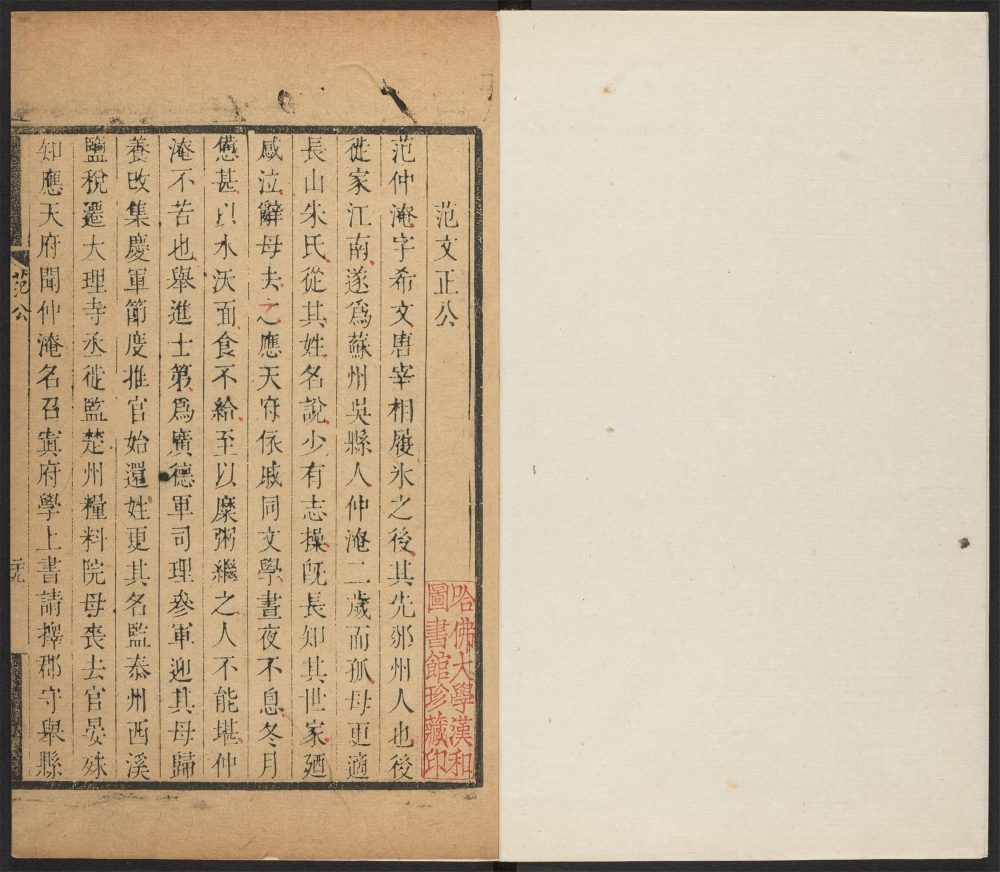 范文正公
范仲淹字希文唐宰相履冰之後其先邠州人也後
徙家江南遂爲蘇州吳縣人仲淹二歲而孤母更適
長山朱氏從其姓名說少有志操旣長知其世家廼
感泣辭母去之應天府依戚同文學晝夜不息冬月
憊甚以水沃面食不給至以糜粥繼之人不能堪仲
淹不苦也舉進士第爲廣德軍司理參軍迎其母歸
養改集慶軍節度推官始還姓更其名監泰州西溪
鹽稅遷大理寺丞徙監楚州糧料院母喪去官晏殊
知應天府聞仲淹名召寘府學上書請擇郡守舉縣
范公
二十九
哈佛大學漢和
圖書館珍藏印